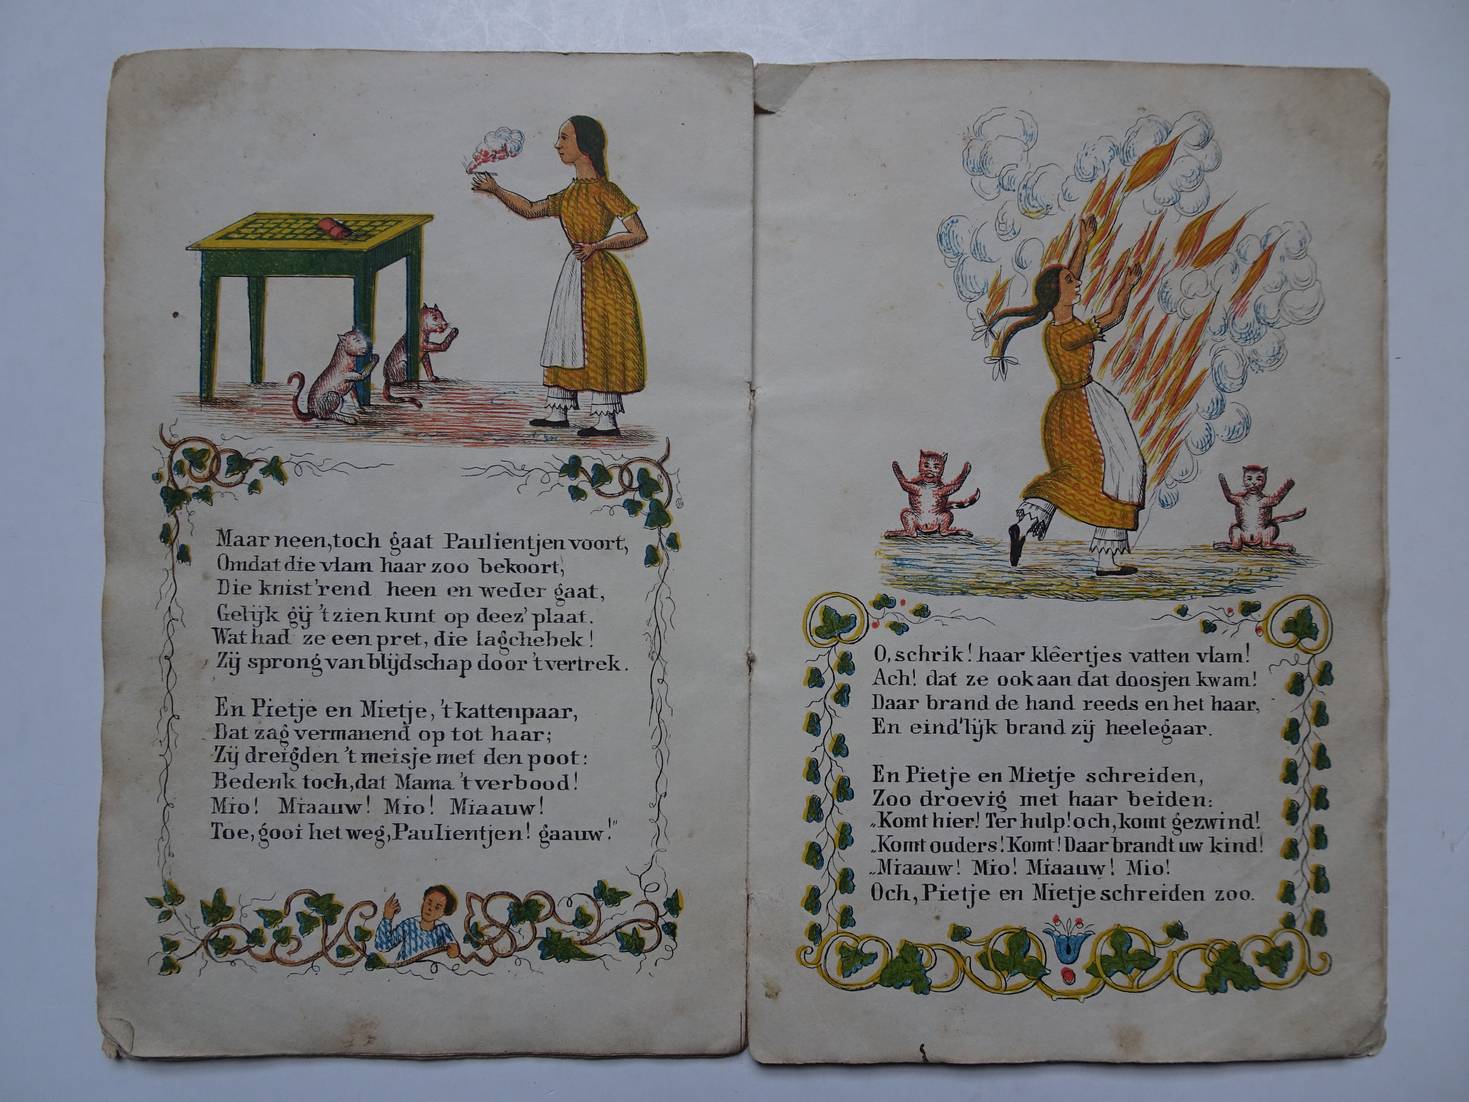 Maar neen, toch gaat Paulientjen voort,
Omdat die vlam haar zoo bekoort,
Die knist'rend heen en weder gaat,
Gelijk gij 't zien kunt op deez' plaat.
Wat had ze een pret, die lagchebek!
Zij sprong van blijdschap door 't vertrek.
En Pietje en Mietje, 't kattenpaar,
Dat zag vermanend op tot haar;
Zij dreigden 't meisje met den poot:
Bedenk toch, dat Mama 't verbood!
Mio! Miaauw! Mio! Miaauw!
Toe, gooi het weg, Paulientjen! gaauw!"
O, schrik! haar klêertjes vatten vlam!
Ach! dat ze ook aan dat doosjen kwam!
Daar brand de hand reeds en het haar,
En eind'lijk brand zij heelegaar.
En Pietje en Mietje schreiden,
Zoo droevig met haar beiden:
„Komt hier! Ter hulp! och, komt gezwind!
„Komt ouders! Komt! Daar brandt uw kind!
„Miaauw! Mio! Miaauw! Mio!
Och, Pietje en Mietje schreiden zoo.